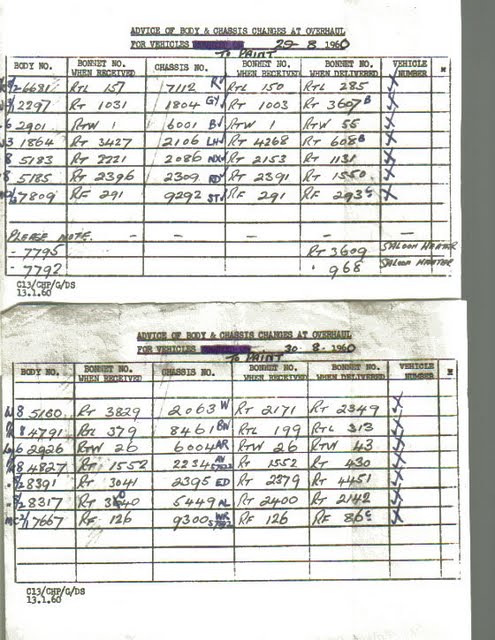 ADVICE OF BODY & CHASSIS CHANGES AT OVERHAUL
FOR VEHICLES TO PAINT 29-8-1960
BODY NO. BONNET NO. WHEN RECEIVED CHASSIS NO. BONNET NO. WHEN RECEIVED BONNET NO. WHEN DELIVERED VEHICLE NUMBER
6681 RTL 157 7112 RTL 150 RTL 285
2297 RT 1031 1804 GY RT 1003 RT 3607 B
2901 RTW 1 6001 B RTW 1 RTW 55
1864 RT 3427 2106 LH RT 4268 RT 608 B
8 5183 RT 2221 2086 NX RT 2153 RT 1131
8 5185 RT 2396 2309 RD RT 2391 RT 1550
7809 RF 291 9292 ST RF 291 RF 293 C
PLEASE NOTE. - - - - -
- 7795 RT 3609 SALOON HEATER
- 7792 " 968 SALOON HEATER
C13/CHP/G/DS
13.1.60
ADVICE OF BODY & CHASSIS CHANGES AT OVERHAUL
FOR VEHICLES TO PAINT 30-8-1960
BODY NO. BONNET NO. WHEN RECEIVED CHASSIS NO. BONNET NO. WHEN RECEIVED BONNET NO. WHEN DELIVERED VEHICLE NUMBER
W8 5180 RT 3829 2063 W RT 2171 RT 2349
4791 RTL 379 8461 BW RTL 199 RTL 313
6 2926 RTW 26 6004 AR RTW 26 RTW 43
8 4827 RT 1552 2234 AV RT 1552 RT 430
8391 RT 3041 2395 ED RT 2379 RT 4451
8317 RT 5449 AL RT 2400 RT 2142
7667 RF 126 9300 WR RF 126 RF 86 C
C13/CHP/G/DS
13.1.60